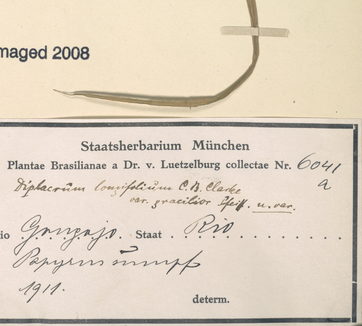 maged 2008
Staatsherbarium München
Plantae Brasilianae a Dr. v. Luetzelburg collectae Nr. 6041
a
Diplacrum longifolium C.B. Clarke
var. gracilior Pfeiff. n. var.
io Staat Rio
1911.
determ.